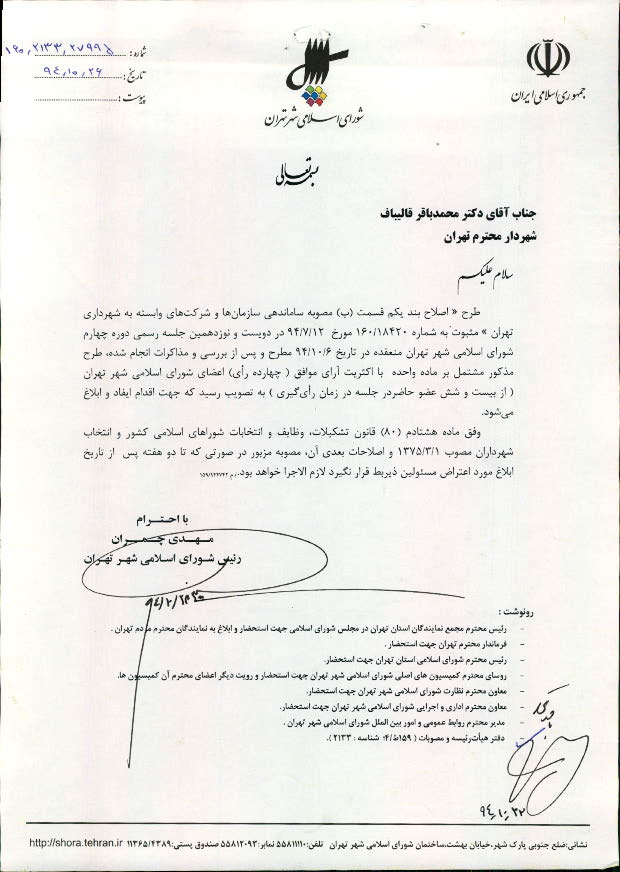 جمهوری اسلامی ایران
شورای اسلامی شهر تهران
شماره: ۱۶۰,۲۱۳۳,۲۷۹۹۵
تاریخ: ۹٤,۱۰,۲۶
پیوست:
بسمه تعالی
جناب آقای دکتر محمدباقر قالیباف
شهردار محترم تهران
سلام علیکم
طرح « اصلاح بند یکم قسمت (ب) مصوبه ساماندهی سازمان‌ها و شرکت‌های وابسته به شهرداری
تهران » مثبوت به شماره ۱۶۰/۱۸۴۲۰ مورخ ۹۴/۷/۱۲ در دویست و نوزدهمین جلسه رسمی دوره چهارم
شورای اسلامی شهر تهران منعقده در تاریخ ۹۴/۱۰/۶ مطرح و پس از بررسی و مذاکرات انجام شده، طرح
مذکور مشتمل بر ماده واحده با اکثریت آرای موافق ( چهارده رأی) اعضای شورای اسلامی شهر تهران
( از بیست و شش عضو حاضردر جلسه در زمان رأی‌گیری ) به تصویب رسید که جهت اقدام ایفاد و ابلاغ
می‌شود.
وفق ماده هشتادم (۸۰) قانون تشکیلات، وظایف و انتخابات شوراهای اسلامی کشور و انتخاب
شهرداران مصوب ۱۳۷۵/۳/۱ و اصلاحات بعدی آن، مصوبه مزبور در صورتی که تا دو هفته پس از تاریخ
ابلاغ مورد اعتراض مسئولین ذیربط قرار نگیرد لازم الاجرا خواهد بود.
با احتــرام
مهـدی چمـران
رئیس شورای اسلامی شهر تهران
رونوشت :
- رئیس محترم مجمع نمایندگان استان تهران در مجلس شورای اسلامی جهت استحضار و ابلاغ به نمایندگان محترم مردم تهران .
- فرماندار محترم تهران جهت استحضار .
- رئیس محترم شورای اسلامی استان تهران جهت استحضار.
- روسای محترم کمیسیون های اصلی شورای اسلامی شهر تهران جهت استحضار و رویت دیگر اعضای محترم آن کمیسیون ها.
- معاون محترم نظارت شورای اسلامی شهر تهران جهت استحضار.
- معاون محترم اداری و اجرایی شورای اسلامی شهر تهران جهت استحضار.
- مدیر محترم روابط عمومی و امور بین الملل شورای اسلامی شهر تهران .
- دفتر هیأت‌رئیسه و مصوبات ( ۱۵۹ط/۴؛ شناسه : ۲۱۳۳).
۹٤,۱۰,۲۲
نشانی:ضلع جنوبی پارک شهر،خیابان بهشت،ساختمان شورای اسلامی شهر تهران تلفن:۵۵۸۱۱۱۱۰ نمابر:۵۵۸۱۲۰۹۳ صندوق پستی:۱۱۳۶۵/۴۳۸۹ http://shora.tehran.ir